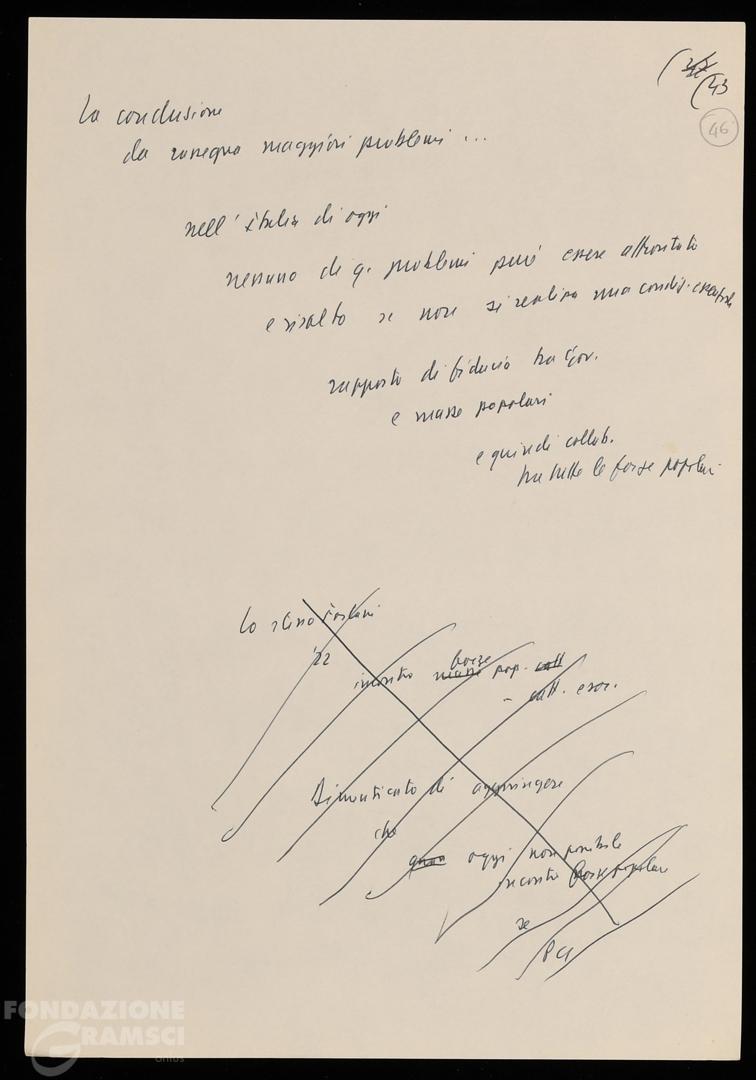 (43
46
La conclusione
da rassegna maggiori problemi ...
nell'Italia di oggi
nessuno di q. problemi può essere affrontato
e risolto se non si realizza una condiz. essenziale
rapporto di fiducia tra Gov.
e masse popolari
e quindi collab.
tra tutte le forze popolari
Lo stesso
'22
incontro masse forze pop. catt
- catt. e soc.
Dimenticato di aggiungere
che
oggi non possibile
incontro forze popolari
se
PCI
FONDAZIONE
GRAMSCI
onlus